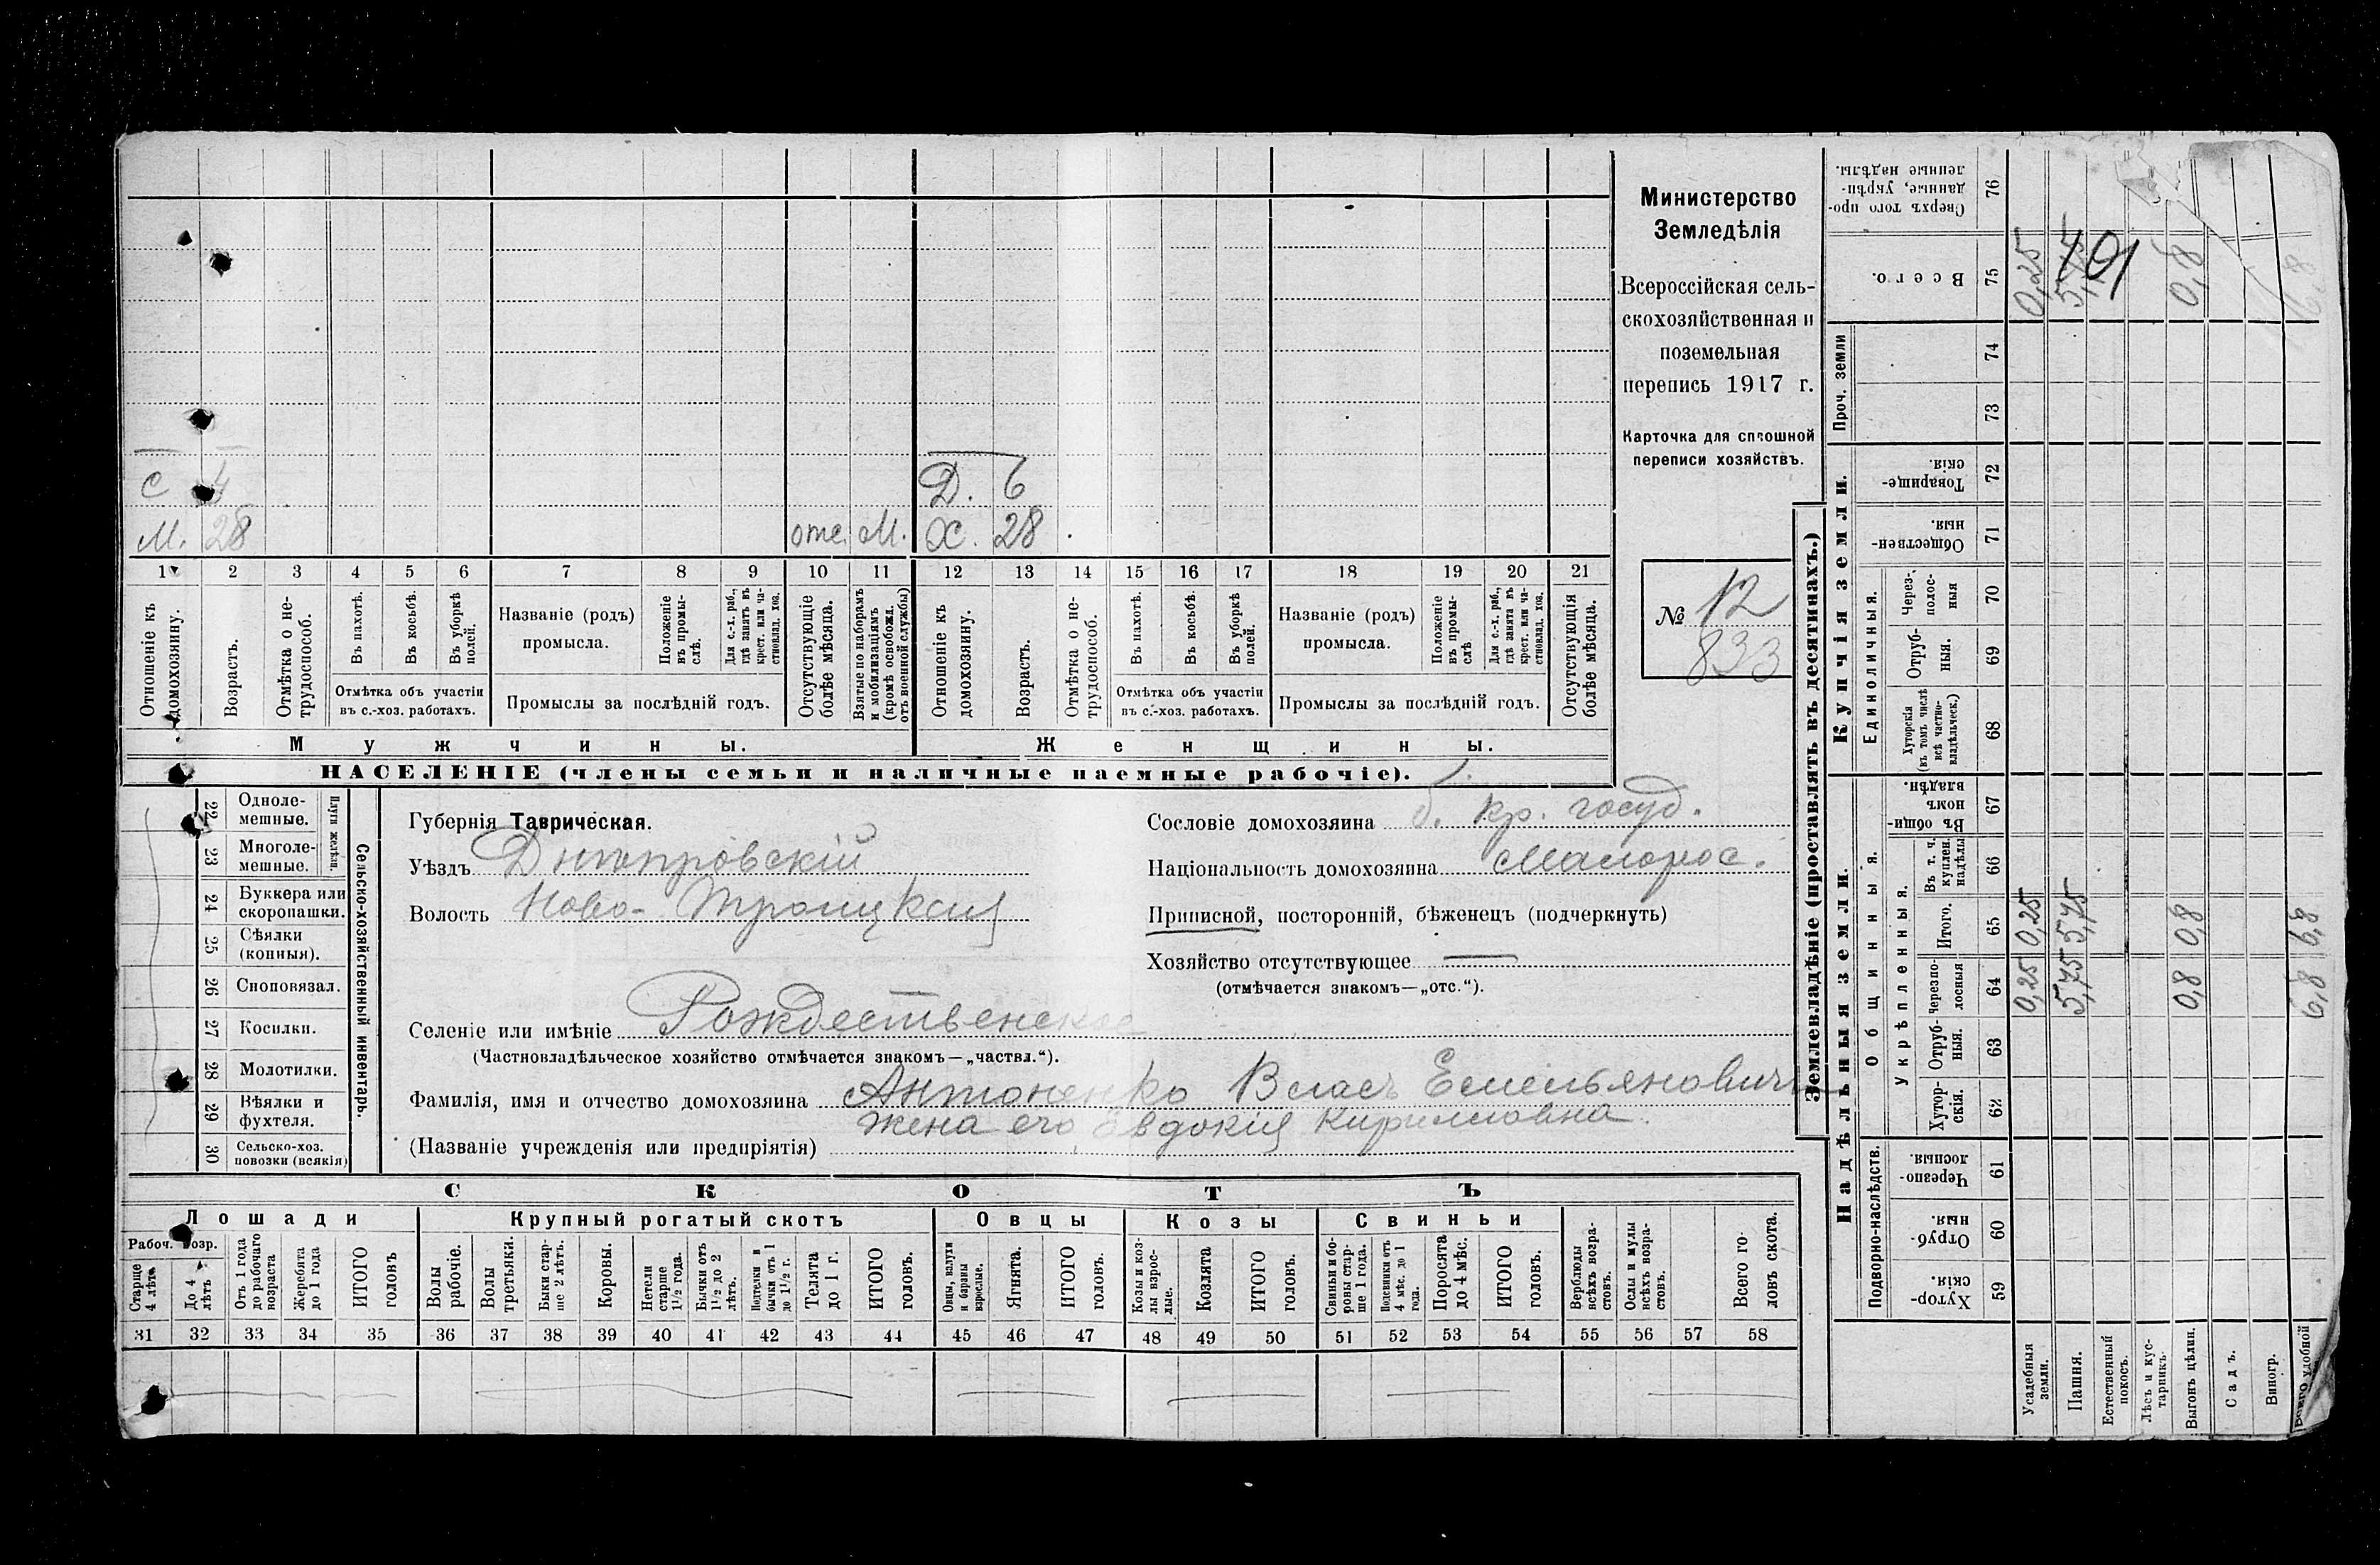 Министерство
Земледѣлія
Всероссійская сель-
скохозяйственная и
поземельная
перепись 1917 г.
Карточка для сплошной
переписи хозяйствъ.
№ 12
833
С 4 Д. 6
М. 28 отс. М. Х. 28
1 2 3 4 5 6 7 8 9 10 11 12 13 14 15 16 17 18 19 20 21
Отношеніе къ домохозяину.
Возрастъ.
Отмѣтка о не-трудоспособ.
Въ пахотѣ.
Въ косьбѣ.
Въ уборкѣ полей.
Отмѣтка объ участіи
въ с.-хоз. работахъ.
Названіе (родъ)
промысла.
Положеніе въ промы-слѣ.
Для с.-х. раб., гдѣ занятъ въ крест. или ча-стновлад. хоз.
Промыслы за послѣдній годъ.
Отсутствующіе болѣе мѣсяца.
Взятые по наборамъ и мобилизаціямъ (кромѣ освобожд. отъ военной службы)
Отношеніе къ домохозяину.
Возрастъ.
Отмѣтка о не-трудоспособ.
Въ пахотѣ.
Въ косьбѣ.
Въ уборкѣ полей.
Отмѣтка объ участіи
въ с.-хоз. работахъ.
Названіе (родъ)
промысла.
Положеніе въ промы-слѣ
Для с.-х. раб., гдѣ занята въ крест. или ча-стновлад. хоз.
Промыслы за послѣдній годъ.
Отсутствующія болѣе мѣсяца.
Мужчины.
Женщины.
НАСЕЛЕНІЕ (члены семьи и наличные наемные рабочіе).
Сельско-хозяйственный инвентарь.
Плуги желѣзн.
22 Одноле-мешные.
23 Многоле-мешные.
24 Буккера или скоропашки.
25 Сѣялки (конныя).
26 Сноповязал.
27 Косилки.
28 Молотилки.
29 Вѣялки и фухтеля.
30 Сельско-хоз. повозки (всякія)
Губернія Таврическая.
Уѣздъ Днѣпровскій
Волость Ново-Троицкая
Селеніе или имѣніе Рождественское
(Частновладѣльческое хозяйство отмѣчается знакомъ — „частвл.“).
Фамилія, имя и отчество домохозяина Антоненко Власъ Емельяновичъ
жена его Евдокія Кирилловна.
(Названіе учрежденія или предпріятія)
Сословіе домохозяина б. кр. госуд.
Національность домохозяина Малорос.
Приписной, посторонній, бѣженецъ (подчеркнуть)
Хозяйство отсутствующее —
(отмѣчается знакомъ—„отс.“).
СКОТЪ
Лошади
Крупный рогатый скотъ
Овцы
Козы
Свиньи
Рабоч. возр.
Старше 4 лѣтъ
До 4 лѣтъ
Отъ 1 года до рабочаго возраста
Жеребята до 1 года
ИТОГО головъ
Волы рабочіе.
Волы третьяки.
Быки стар-ше 2 лѣтъ.
Коровы.
Нетели старше 1½ года.
Бычки отъ 1½ до 2 лѣтъ.
Подтелки и бычки отъ 1 до 1½ г.
Телята до 1 г.
ИТОГО головъ.
Овцы, валухи и бараны взрослые.
Ягнята.
ИТОГО головъ.
Козы и коз-лы взрос-лые.
Козлята
ИТОГО головъ.
Свиньи и бо-ровы стар-ше 1 года.
Подсвинки отъ 4 мѣс. до 1 года.
Поросята до 4 мѣс.
ИТОГО головъ.
Верблюды всѣхъ возра-стовъ.
Ослы и мулы всѣхъ возра-стовъ.
Всего го-ловъ скота.
31 32 33 34 35 36 37 38 39 40 41 42 43 44 45 46 47 48 49 50 51 52 53 54 55 56 57 58
Землевладѣніе (проставлять въ десятинахъ.)
Надѣльныя земли.
Купчія земли.
Проч. земли
Подворно-наслѣдств.
Общинныя.
Укрѣпленныя.
Единоличныя.
Хутор-скія. 59
Отруб-ныя. 60
Черезпо-лосныя. 61
Хутор-скія. 62
Отруб-ныя. 63
Черезпо-лосныя 64
Итого. 65
Въ т. ч. куплен. надѣлы 66
Въ общин-номъ владѣн. 67
Хуторскія (въ томъ числѣ всѣ частно-владѣльческ.) 68
Отруб-ныя. 69
Через-полос-ныя 70
Обществен-ныя 71
Товарище-скія. 72
73
74
Всего. 75
Сверхъ того про-данные, укрѣп-ленные надѣлы. 76
Усадебныя земли. 0,25 0,25 0,25
Пашня. 5,75 5,75 5,75
101
Естественный покосъ.
Лѣсъ и кус-тарникъ.
Выгонъ цѣлин. 0,8 0,8 0,8
Садъ.
Виногр.
Всего удобной 6,8 6,8 6,8